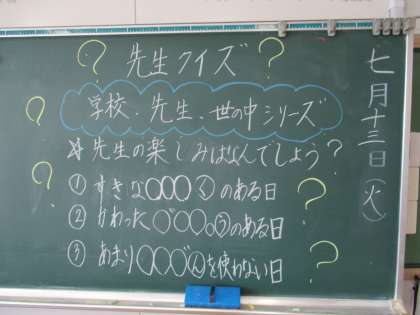 七月十三日(火)
? 先生クイズ ?
学校、先生、世の中シリーズ
☆先生の楽しみはなんでしょう?
① すきな○○○くのある日
② かわった○゛○○。うのある日
③ あまり○○○゛んを使わない日